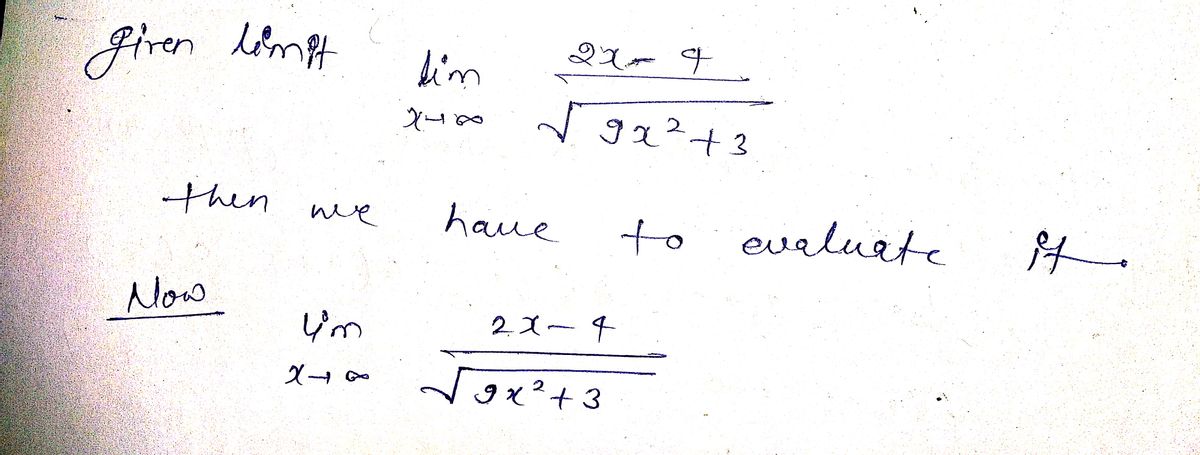 given limit lim 2x - 4
x→∞ √9x²+3
then we have to evaluate it.
Now
lim 2x - 4
x→∞ √9x²+3